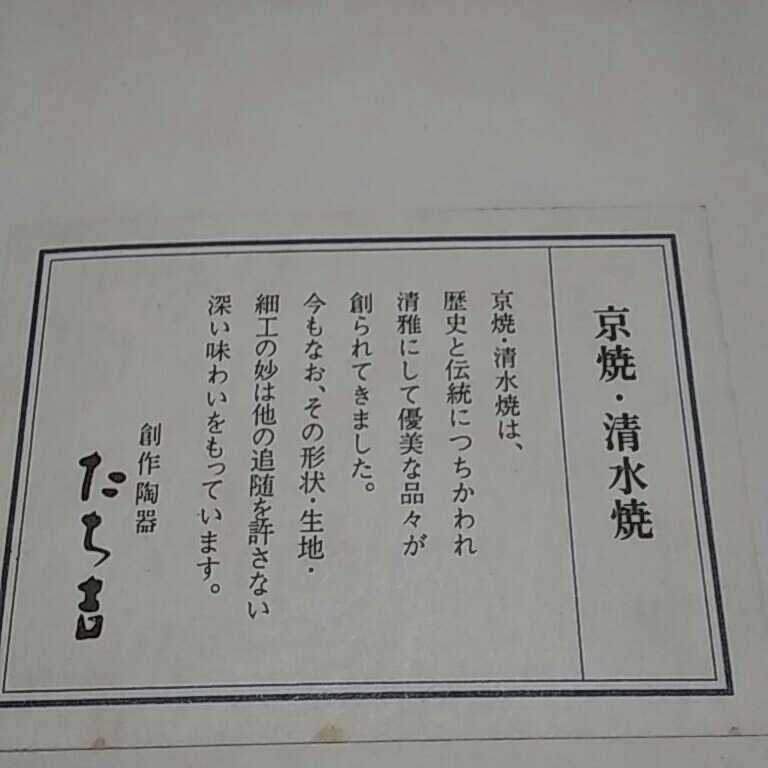 京焼・清水焼
京焼・清水焼は、
歴史と伝統につちかわれ
清雅にして優美な品々が
創られてきました。
今もなお、その形状・生地・
細工の妙は他の追随を許さない
深い味わいをもっています。
創作陶器
たち吉